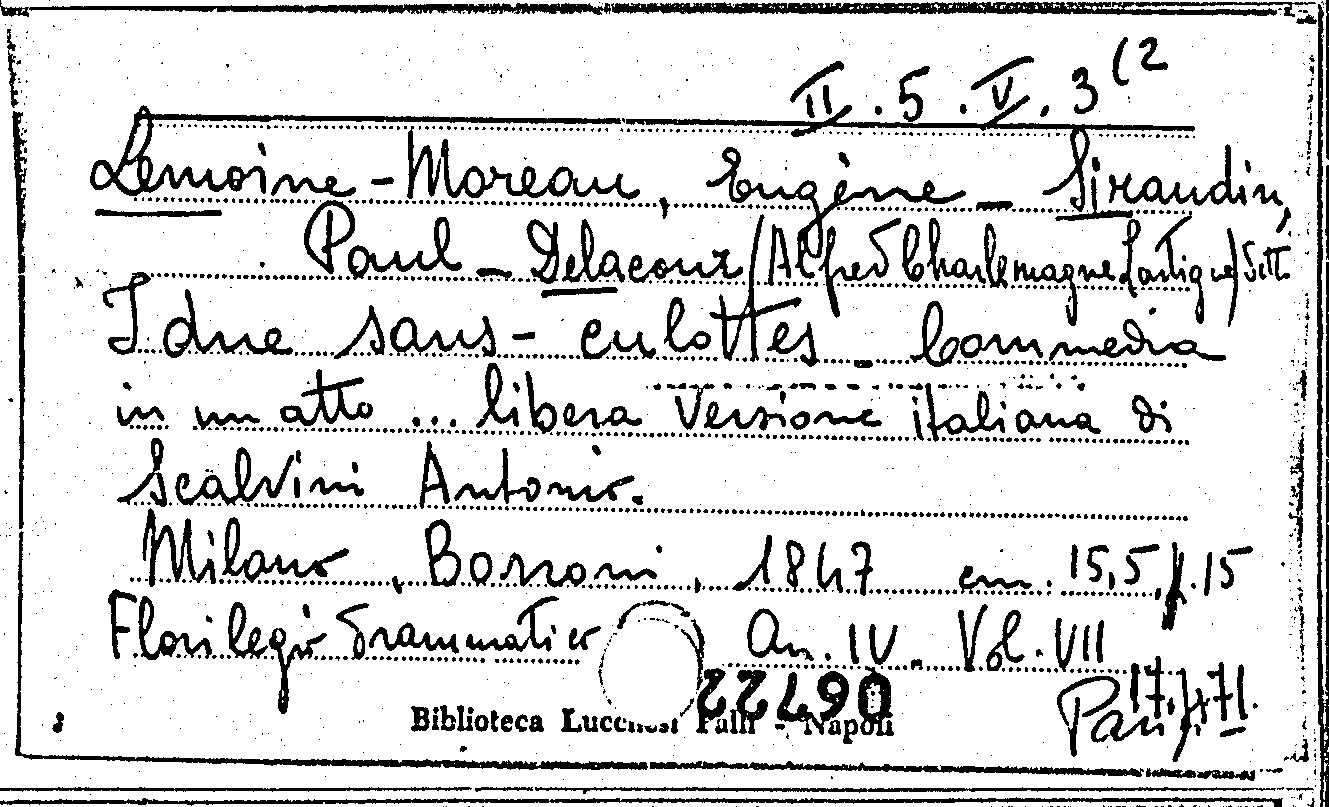 II.5.V.3 (2
Lemoine-Moreau, Eugène - Siraudin,
Paul - Delacour (Alfred Charlemagne Lartigue) detto
I due sans-culottes - Commedia
in un atto ... libera versione italiana di
Scalvini Antonio.
Milano, Borroni, 1847 cm. 15,5 p. 15
Florilegio drammatico An. IV. Vol. VII
Biblioteca Lucchesi Palli - Napoli